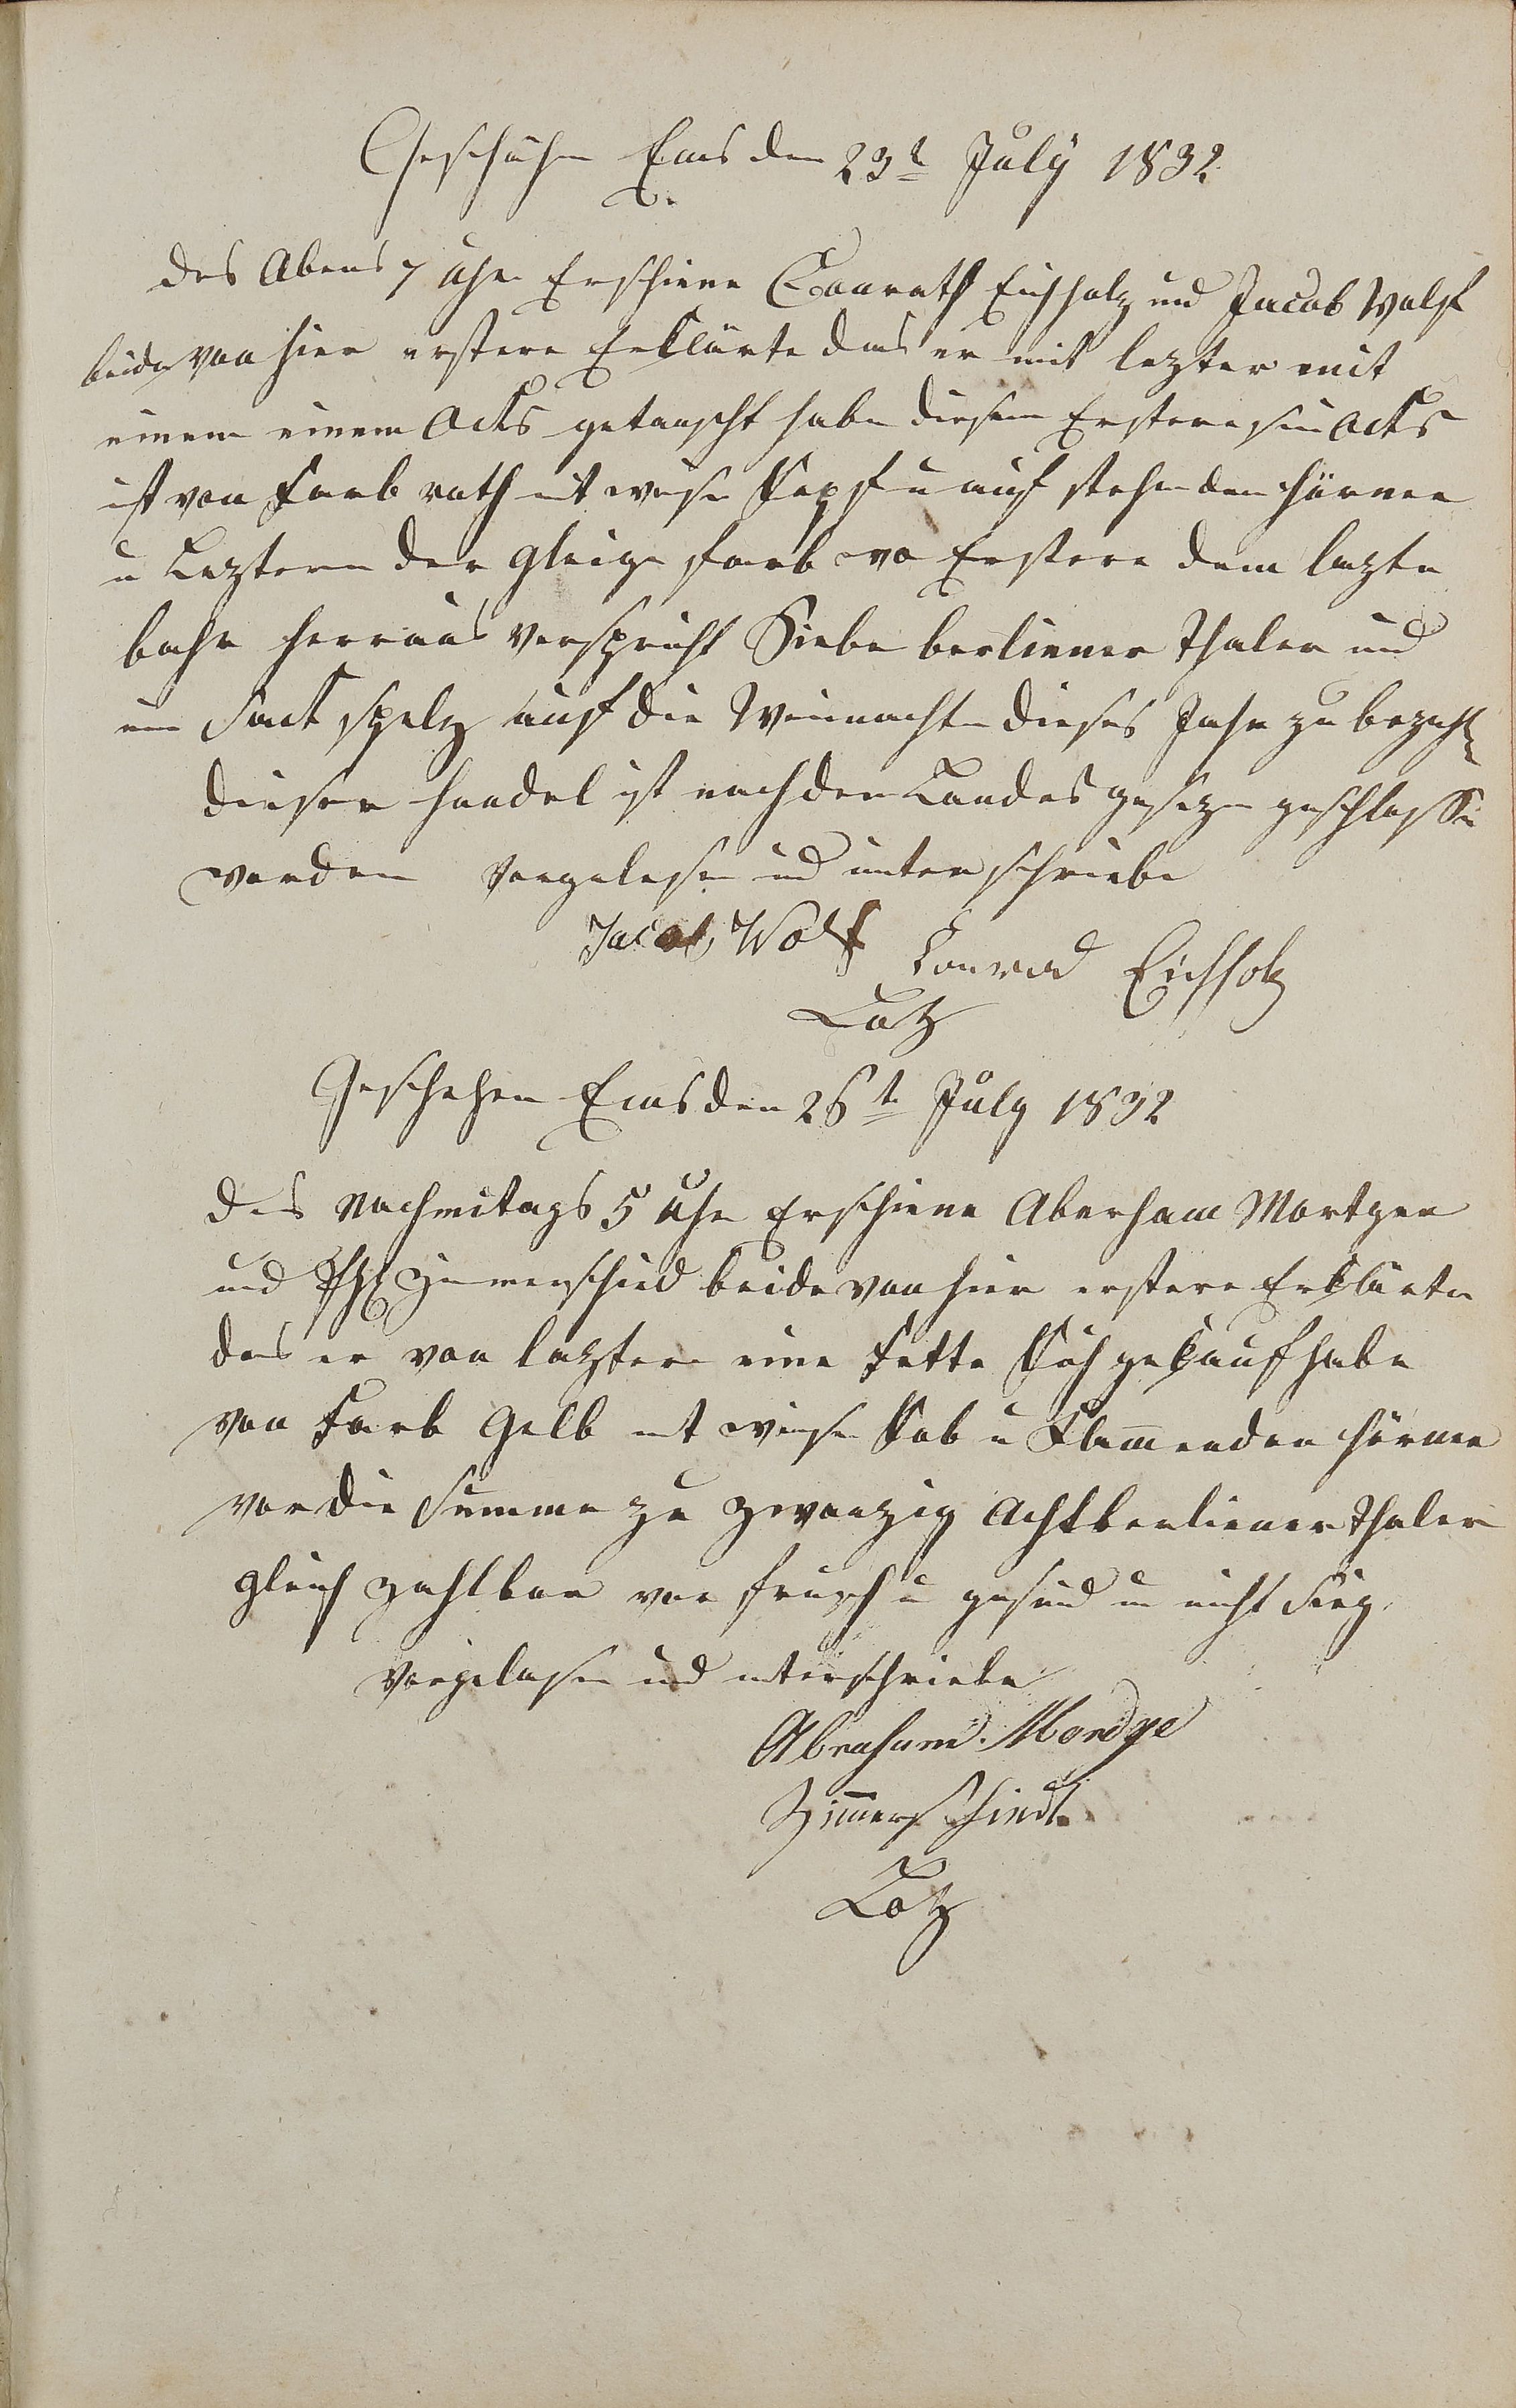 Geschehen Ems den 23t July 1832
des Abens 7 Uhr Erschiene Conrath Eichholz und Jacob Wolf
beide von hier erstere Erklärte das er mit lezter mit
einem einem Ocks getauscht habe diesem Erstere sein Ocks
ist von Farb roth mit weise Kopf u auf stehenden Hörner
u Leztern der gleige farb wo Erstere dem lezte
bahr herraus verspricht Siebe berliener Thaler und
ein Sack spelz auf die Weinachte dieses Jahr zu bezahl
dieser handel ist nach den Landes gesezen geschlosse
worden vorgelesen und unterschriebe
Jacob Wolf Conrad Eichholz
Lotz
Geschehen Ems den 26t July 1832
des Nachmitags 5 Uhr Erschiene Aberham Mortgen
und Zimerschied beide von hier erstere Erklärte
das er von lezter eine fette Küh gekauf habe
von Farb Gelb mit weise Kob u Klam̅enden Hörner
vor die Summe zu zwanzig Acht berliener Thaler
gleich zahlbar vor frisch u gesund u nicht
vorgelesen und unterschriebe
Abraham. Mordge
Zim̅erschiedt
Lotz